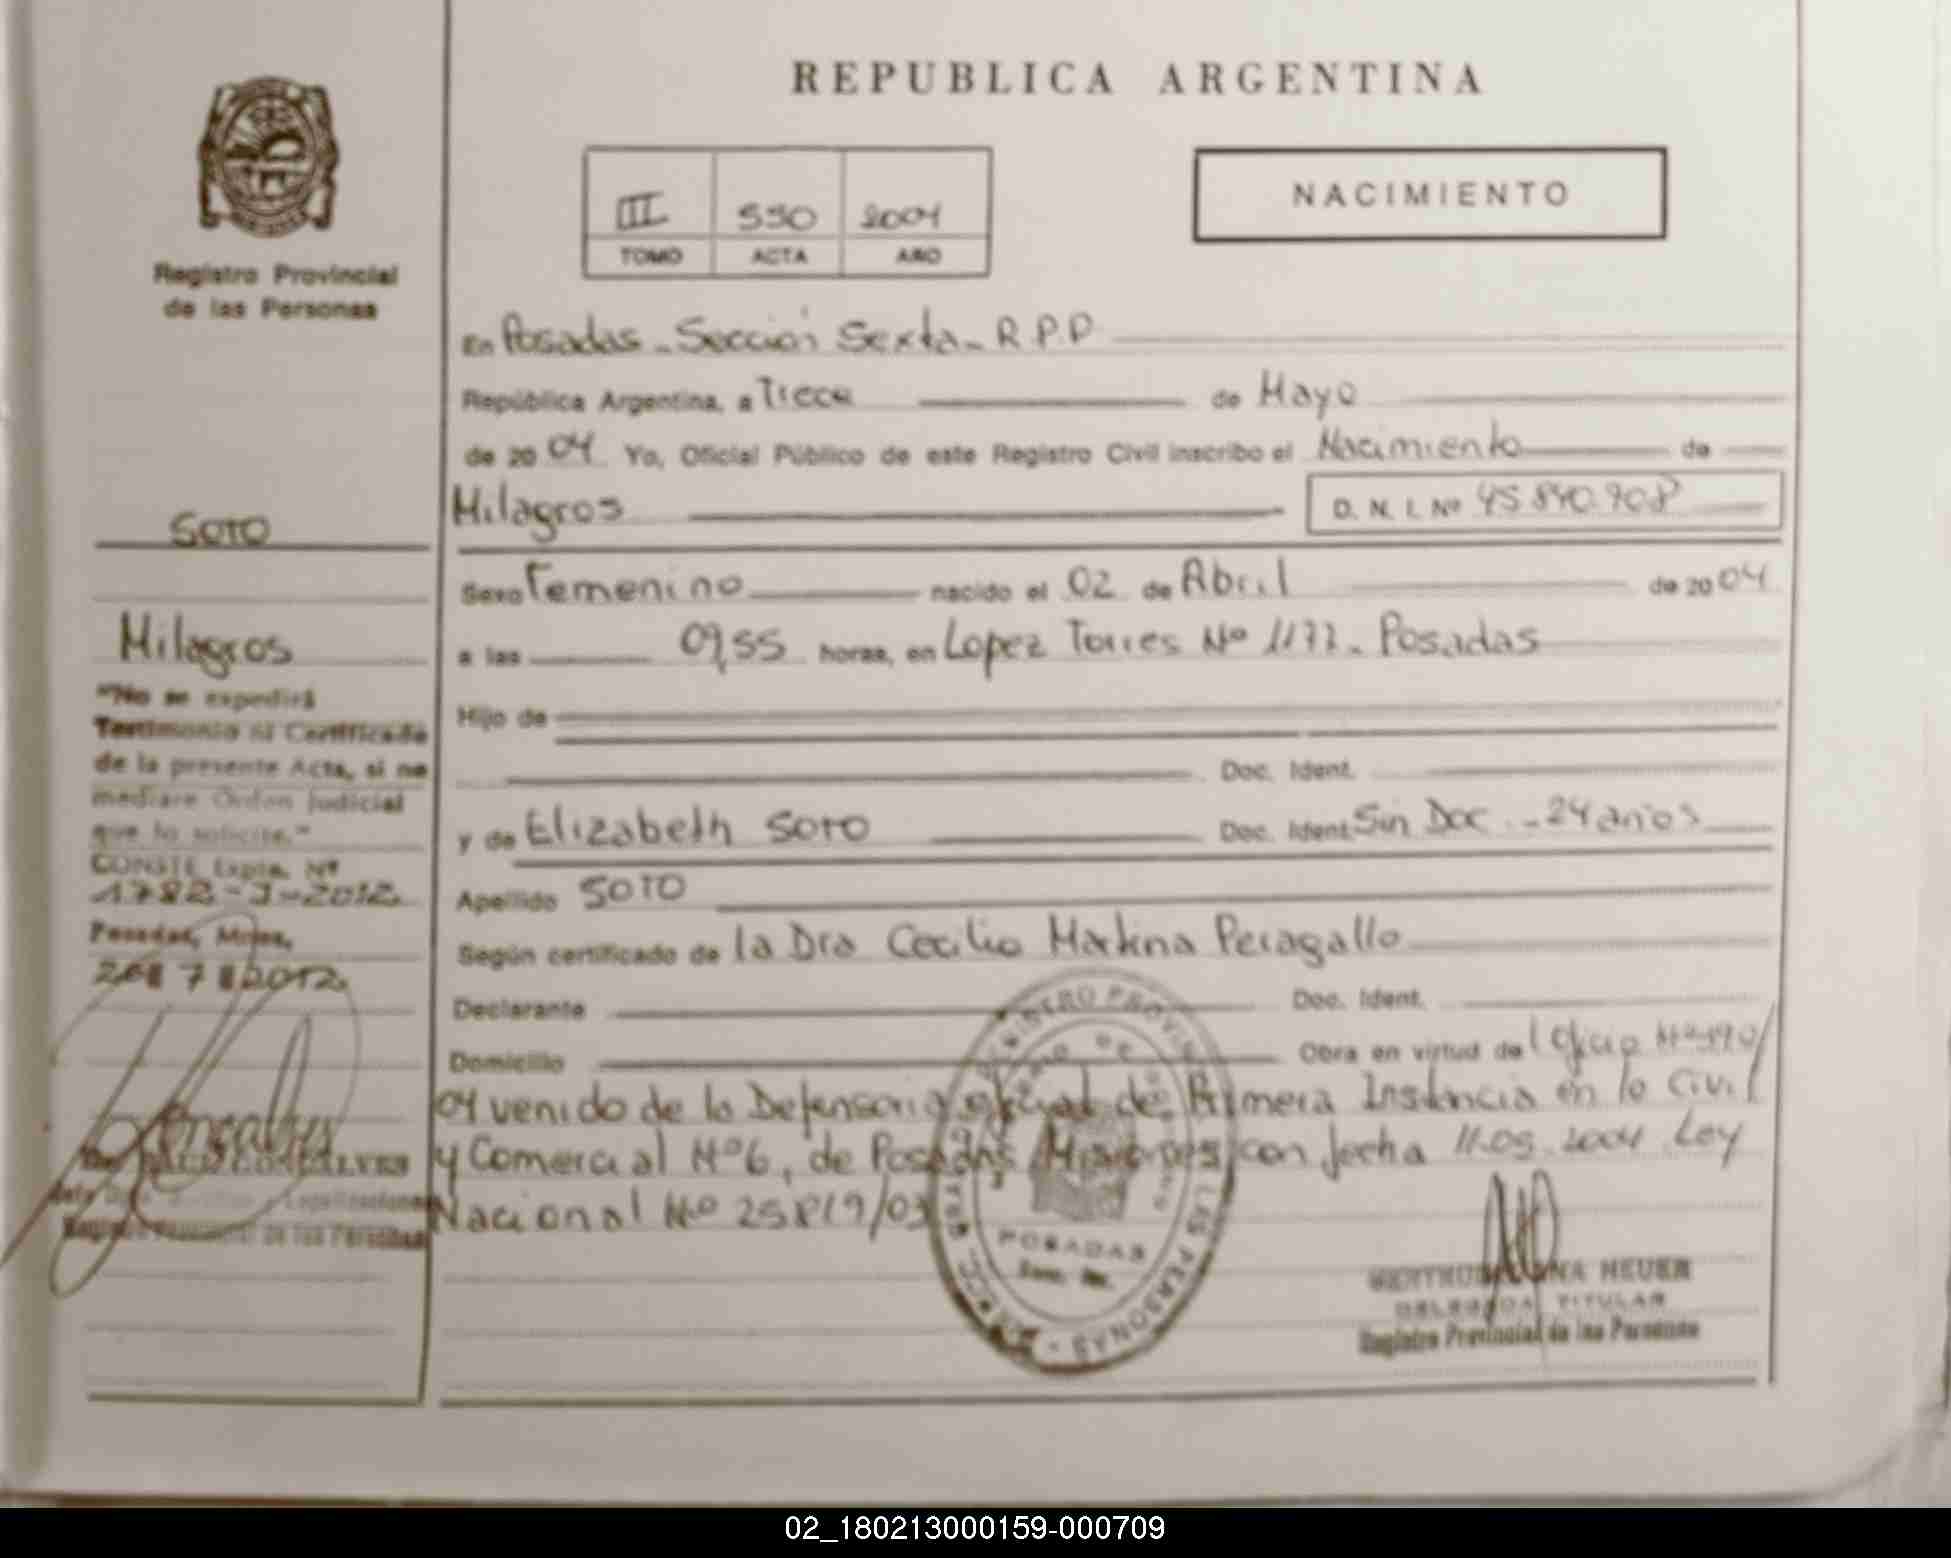 REPUBLICA ARGENTINA
NACIMIENTO
III 550 2004
TOMO ACTA AÑO
Registro Provincial
de las Personas
En Posadas - Sección Sexta - R.P.P
República Argentina, a Trece de Mayo
de 2004 Yo, Oficial Público de este Registro Civil inscribo el Nacimiento de
Milagros D. N. I. Nº 45.840.908
Sexo Femenino nacido el 02 de Abril de 2004
a las 09,55 horas, en Lopez Torres Nº 1177 - Posadas
Hijo de
Doc. Ident.
y de Elizabeth SOTO Doc. Ident. Sin Doc. - 24 años
Apellido SOTO
Según certificado de la Dra Cecilia Martina Peragallo
Declarante Doc. Ident.
Domicilio Obra en virtud del Oficio Nº 490/
04 venido de la Defensoria oficial de Primera Instancia en lo Civil
y Comercial Nº 6, de Posadas Misiones con fecha 11.05.2004 Ley
Nacional Nº 25819/03
SOTO
Milagros
"No se expedirá
Testimonio ni Certificado
de la presente Acta, si no
mediare Orden Judicial
que lo solicite."
CONSTE Expte. Nº
1782-J-2012
Posadas, Mnes,
20 7 2012
GONCALVES
Registro Provincial de las Personas
REGISTRO PROVINCIAL DE LAS PERSONAS
POSADAS
HEUER
DELEGADA TITULAR
Registro Provincial de las Personas
02_180213000159-000709